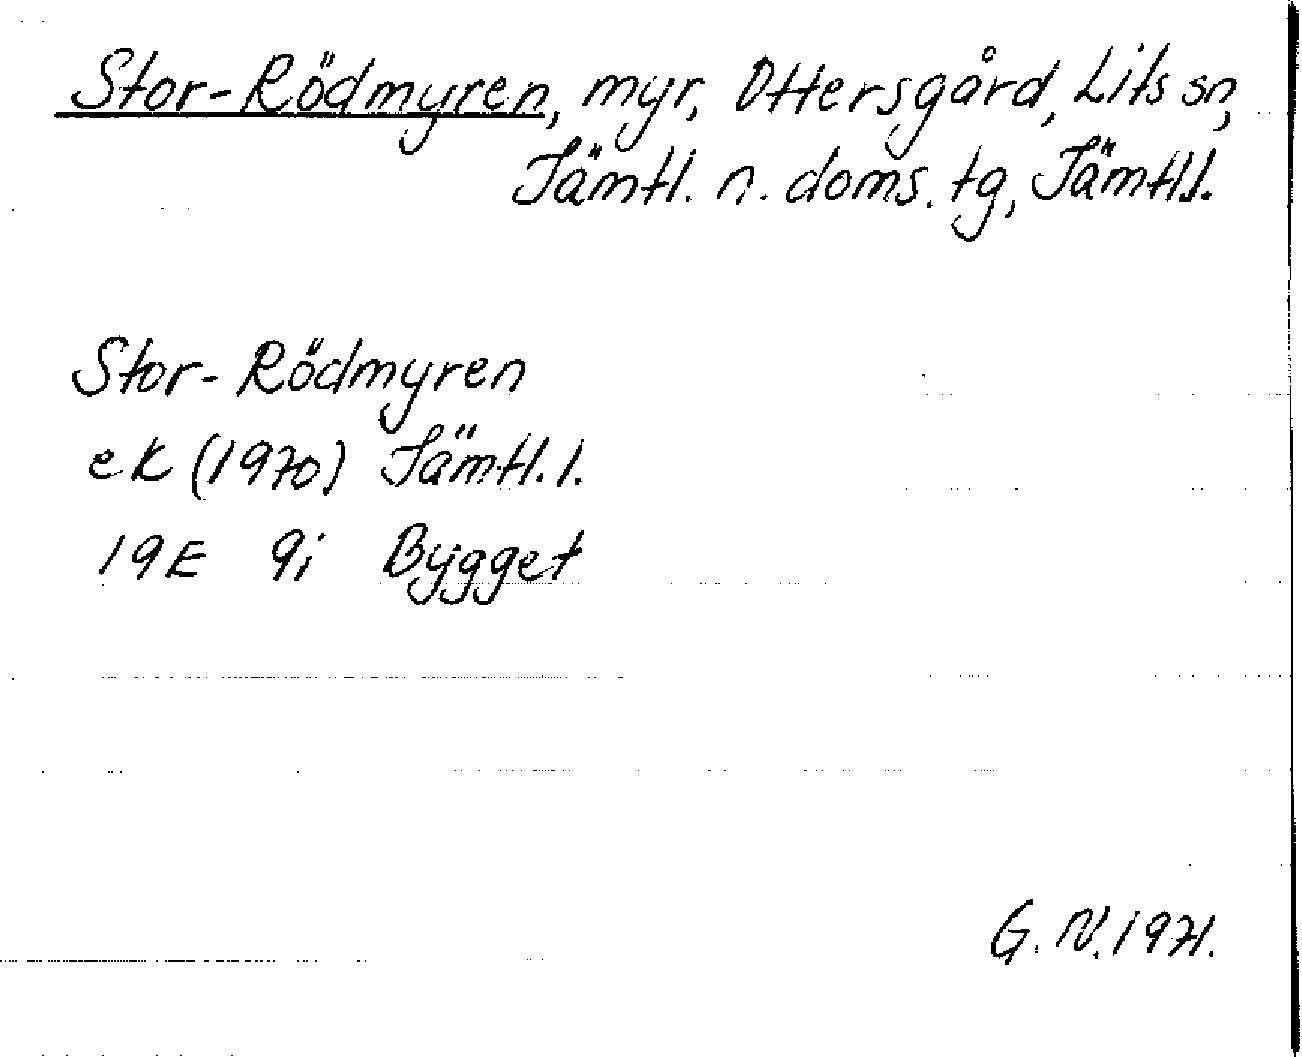 Stor-Rödmyren, myr, Ottersgård, Lits sn,
Jämtl. n. doms. tg, Jämtl.l.
Stor-Rödmyren
ek (1970) Jämtl. l.
19E 9i Bygget
G. N. 1971.